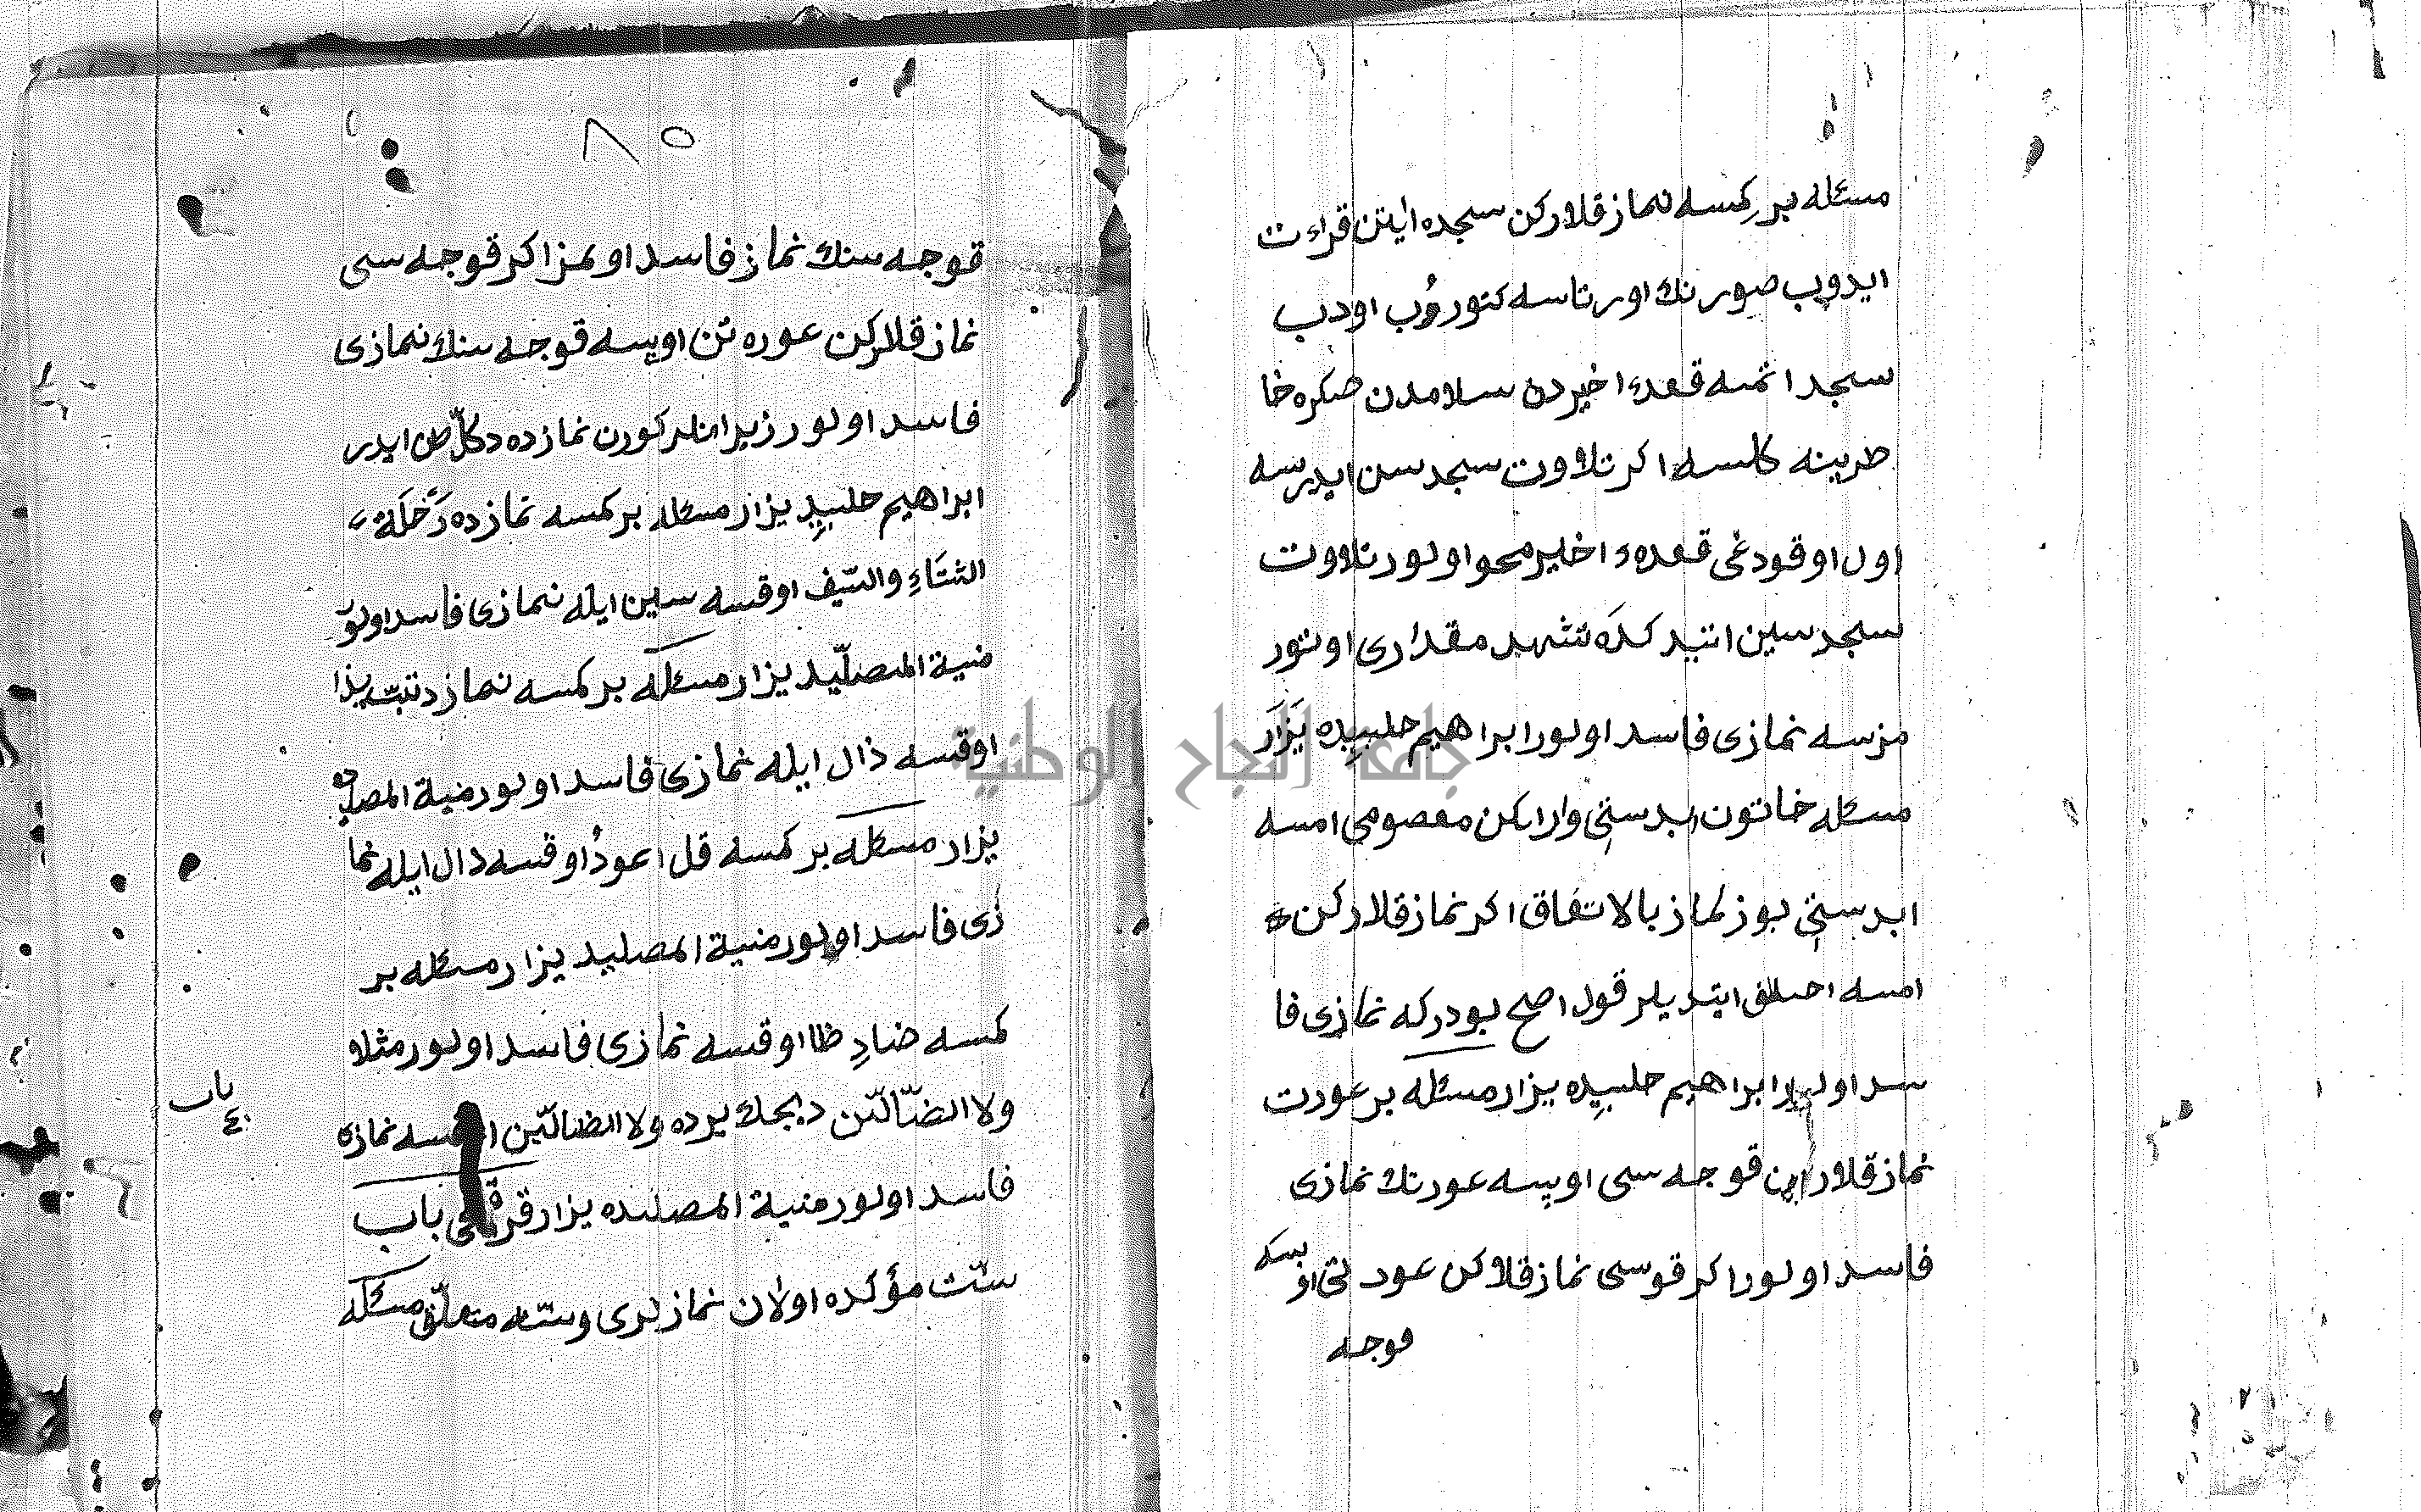 مسئله بر كمسه نماز قلاركن سجده ايتن قراءت
ايدوب صورنك اورتاسه كتوروُب اودب
سجد اتمسه قعدۀ اخيرده سلامدن صكره خا
طرينه كلسه اكر تلاوت سجدسن ايدرسه
اول اوقودغى قعدهء اخير محو اولور تلاوت
سجدسين اتيدكدَه تشهد مقدارى اوتور
مزسه نمازى فاسد اولور ابراهيم حلبيده يَزَارَ
مسئله خاتون ابدستى وارايكن معصومى امسه
ابدستى بوزلماز بالاتفاق اكر نماز قلاركن
امسه اختلاف ايتديلر قول اصح بودركه نمازى فا
سد اولور ابراهيم حلبيده يزار مسئله بر عورت
نماز قلاركن قوجه سى اوپسه عورتك نمازى
فاسد اولور اكر قوسى نماز قلاكن عود تى اوپسه
قوجه
٨٥
قوجه سنك نماز فاسد اولمز اكر قوجه سى
نماز قلاركن عوره تن اوپسه قوجه سنك نمازى
فاسد اولور زيرا انلر كورن نمازده دكلّ ظن ايدر
ابراهيم حلبيدِ يزار مسئله بر كمسه نمازده رَحْلَةَ
الشتَاءِ والسّيف اوقسه سين ايله نمازى فاسد اولور
منية المصلّيد يزار مسئله بر كمسه نمازد تبّت يذا
اوقسه ذال ايله نمازى فاسد اولور منية المصليده
يزار مسئله بر كمسه قل اعودُ اوقسه دال ايله نما
زى فاسد اولور منية المصليد يزار مسئله بر
كمسه ضادِ ظا اوقسه نمازى فاسد اولور مثلا
ولا الضّالّين ديجك يرده ولا الظالّين اوقسه نمازى
فاسد اولور منية المصلىده يزار قرقنجى باب
سنّت مؤكده اولان نمازلرى وسنّته متعلّق مسئله
باب
٤٠
جامعة النجاح الوطنية